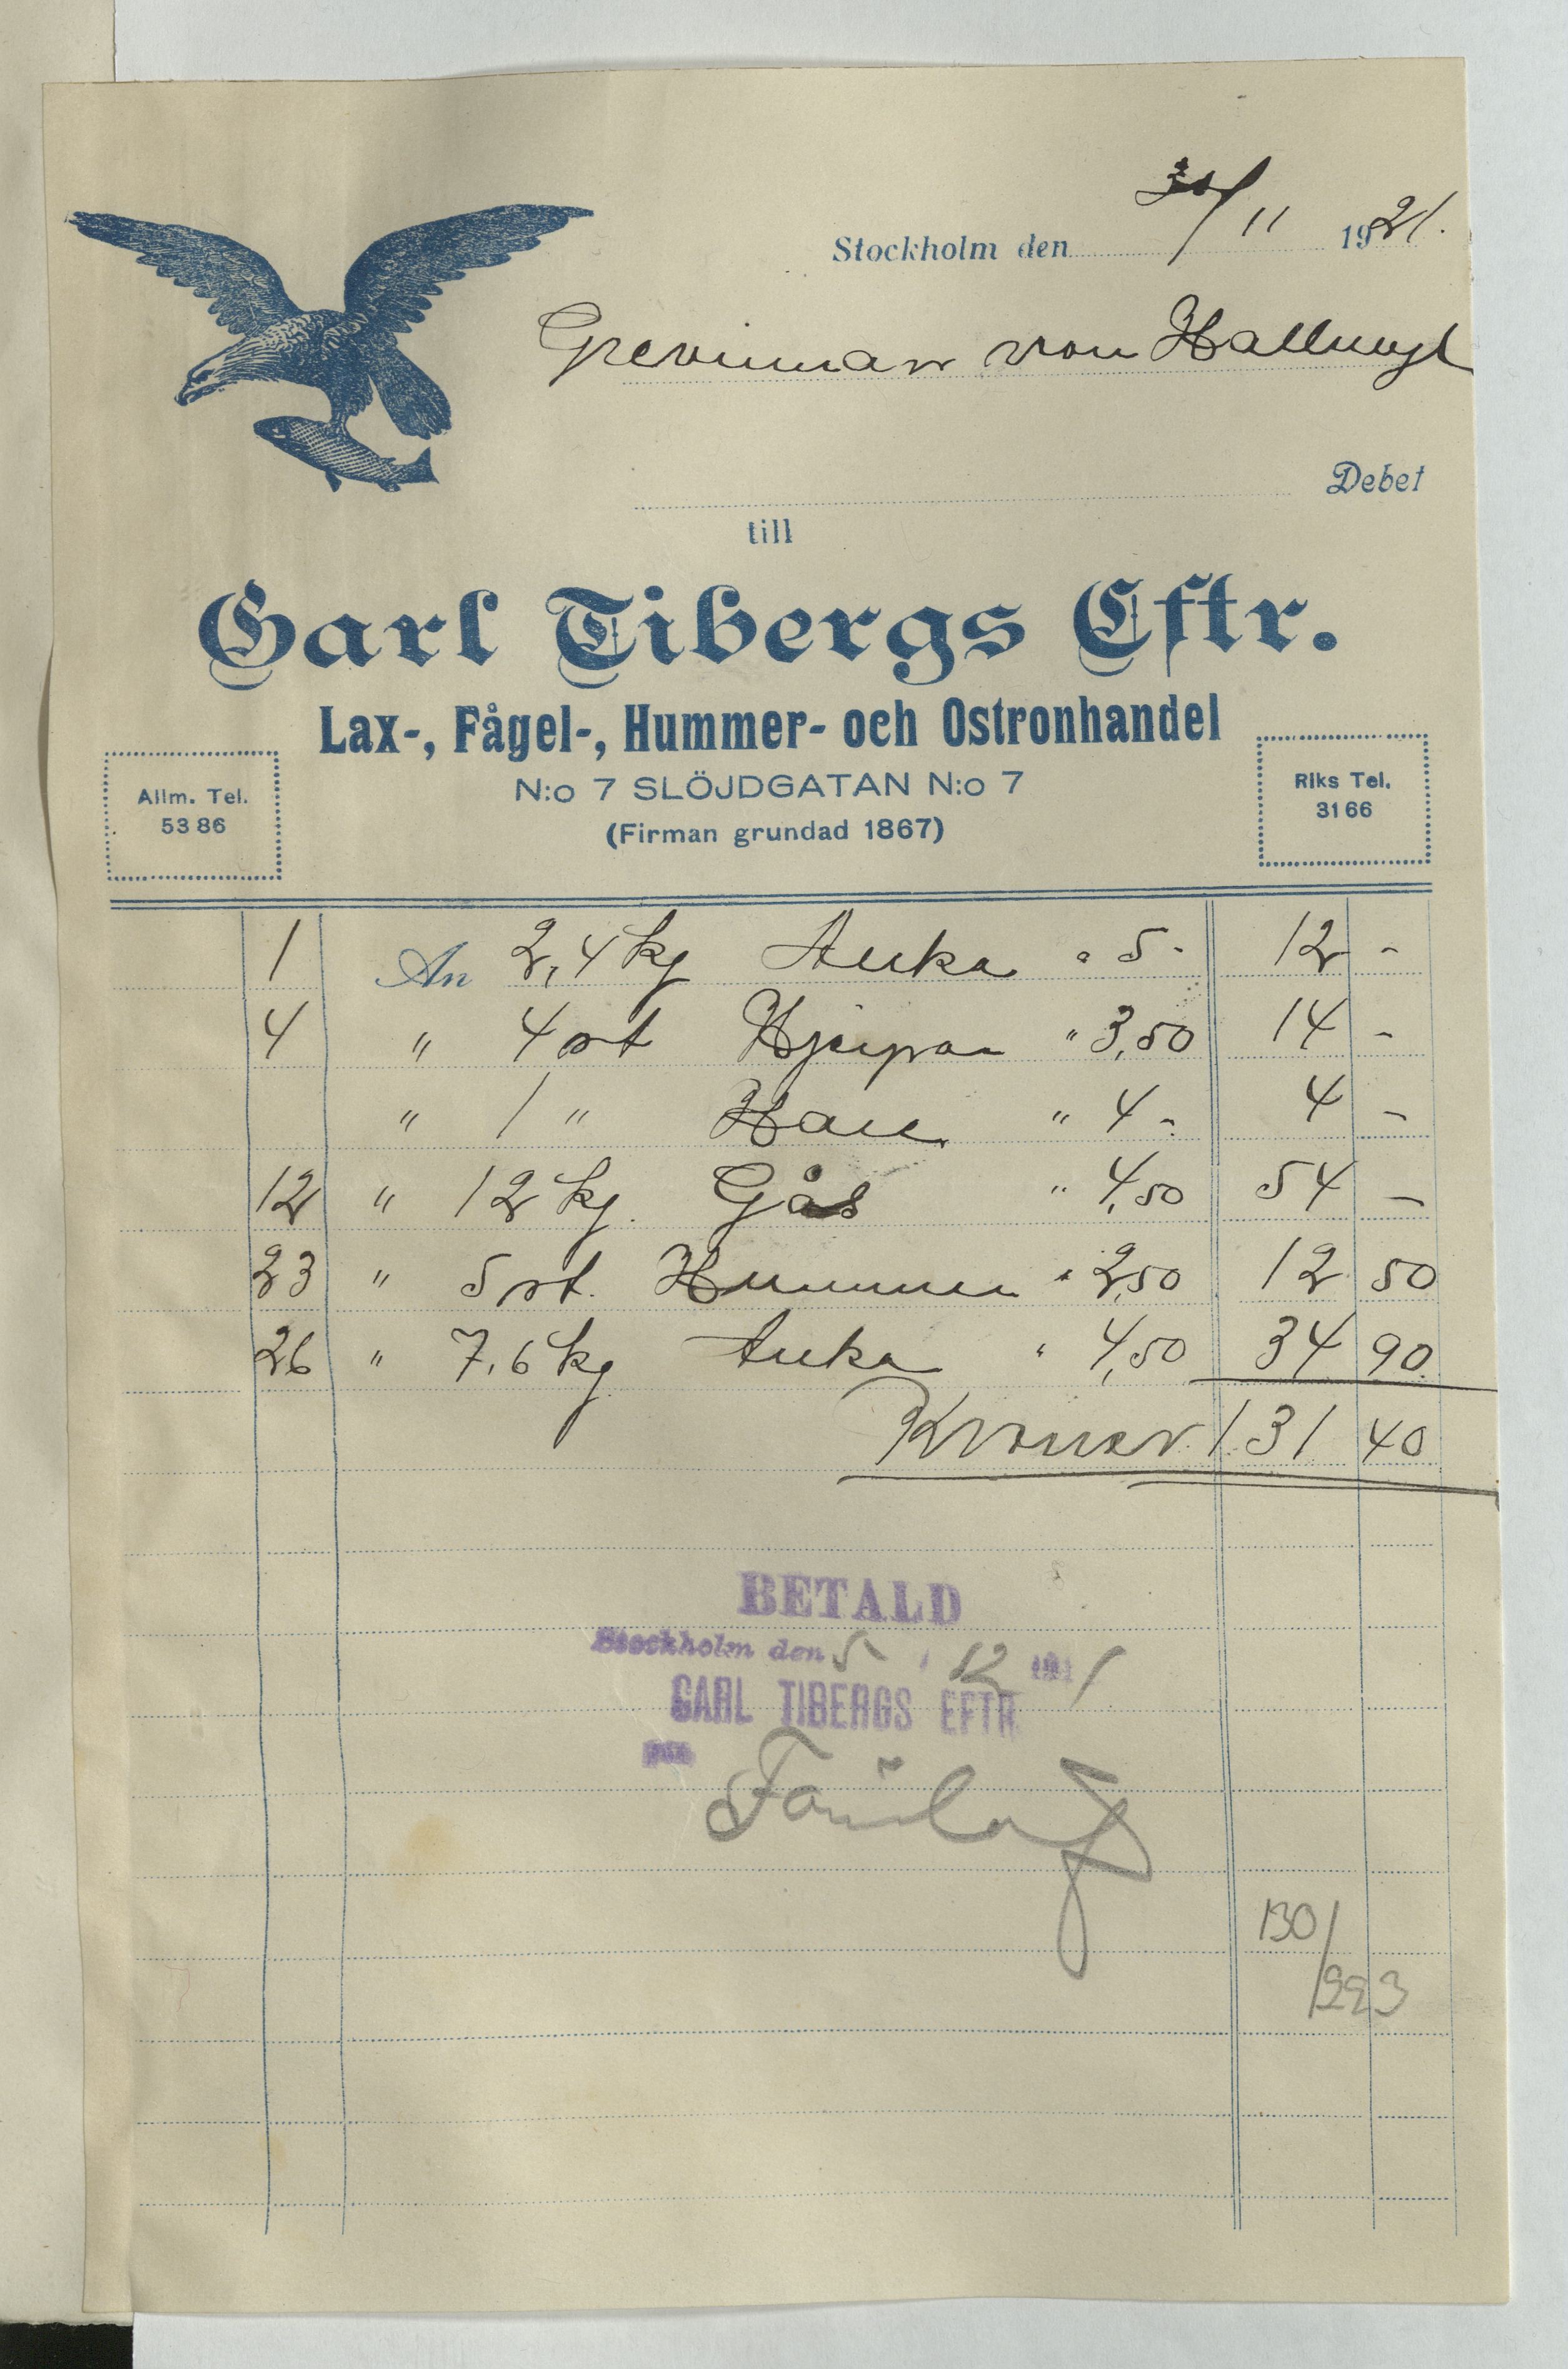 Stockholm den 30/11 1921.
Grevinnan von Hallwyl
Debet
till
Carl Tibergs Eftr.
Lax-, Fågel-, Hummer- och Ostronhandel
N:o 7 SLÖJDGATAN N:o 7
(Firman grundad 1867)
Allm. Tel.
53 86
Riks Tel.
31 66
1 An 2,4 kg Anka " 5 - 12 -
4 " 4 st Hjerpar " 3,50 14 -
" 1 " " 4 - 4 -
12 " 12 kg. Gås " 4,50 54 -
23 " 5 st. Hummer " 2,50 12 50
26 " 7,6 kg Anka " 4,50 34 90
Kronor 131 40
BETALD
Stockholm den 5 / 12 1921
CARL TIBERGS EFTR
130/
223